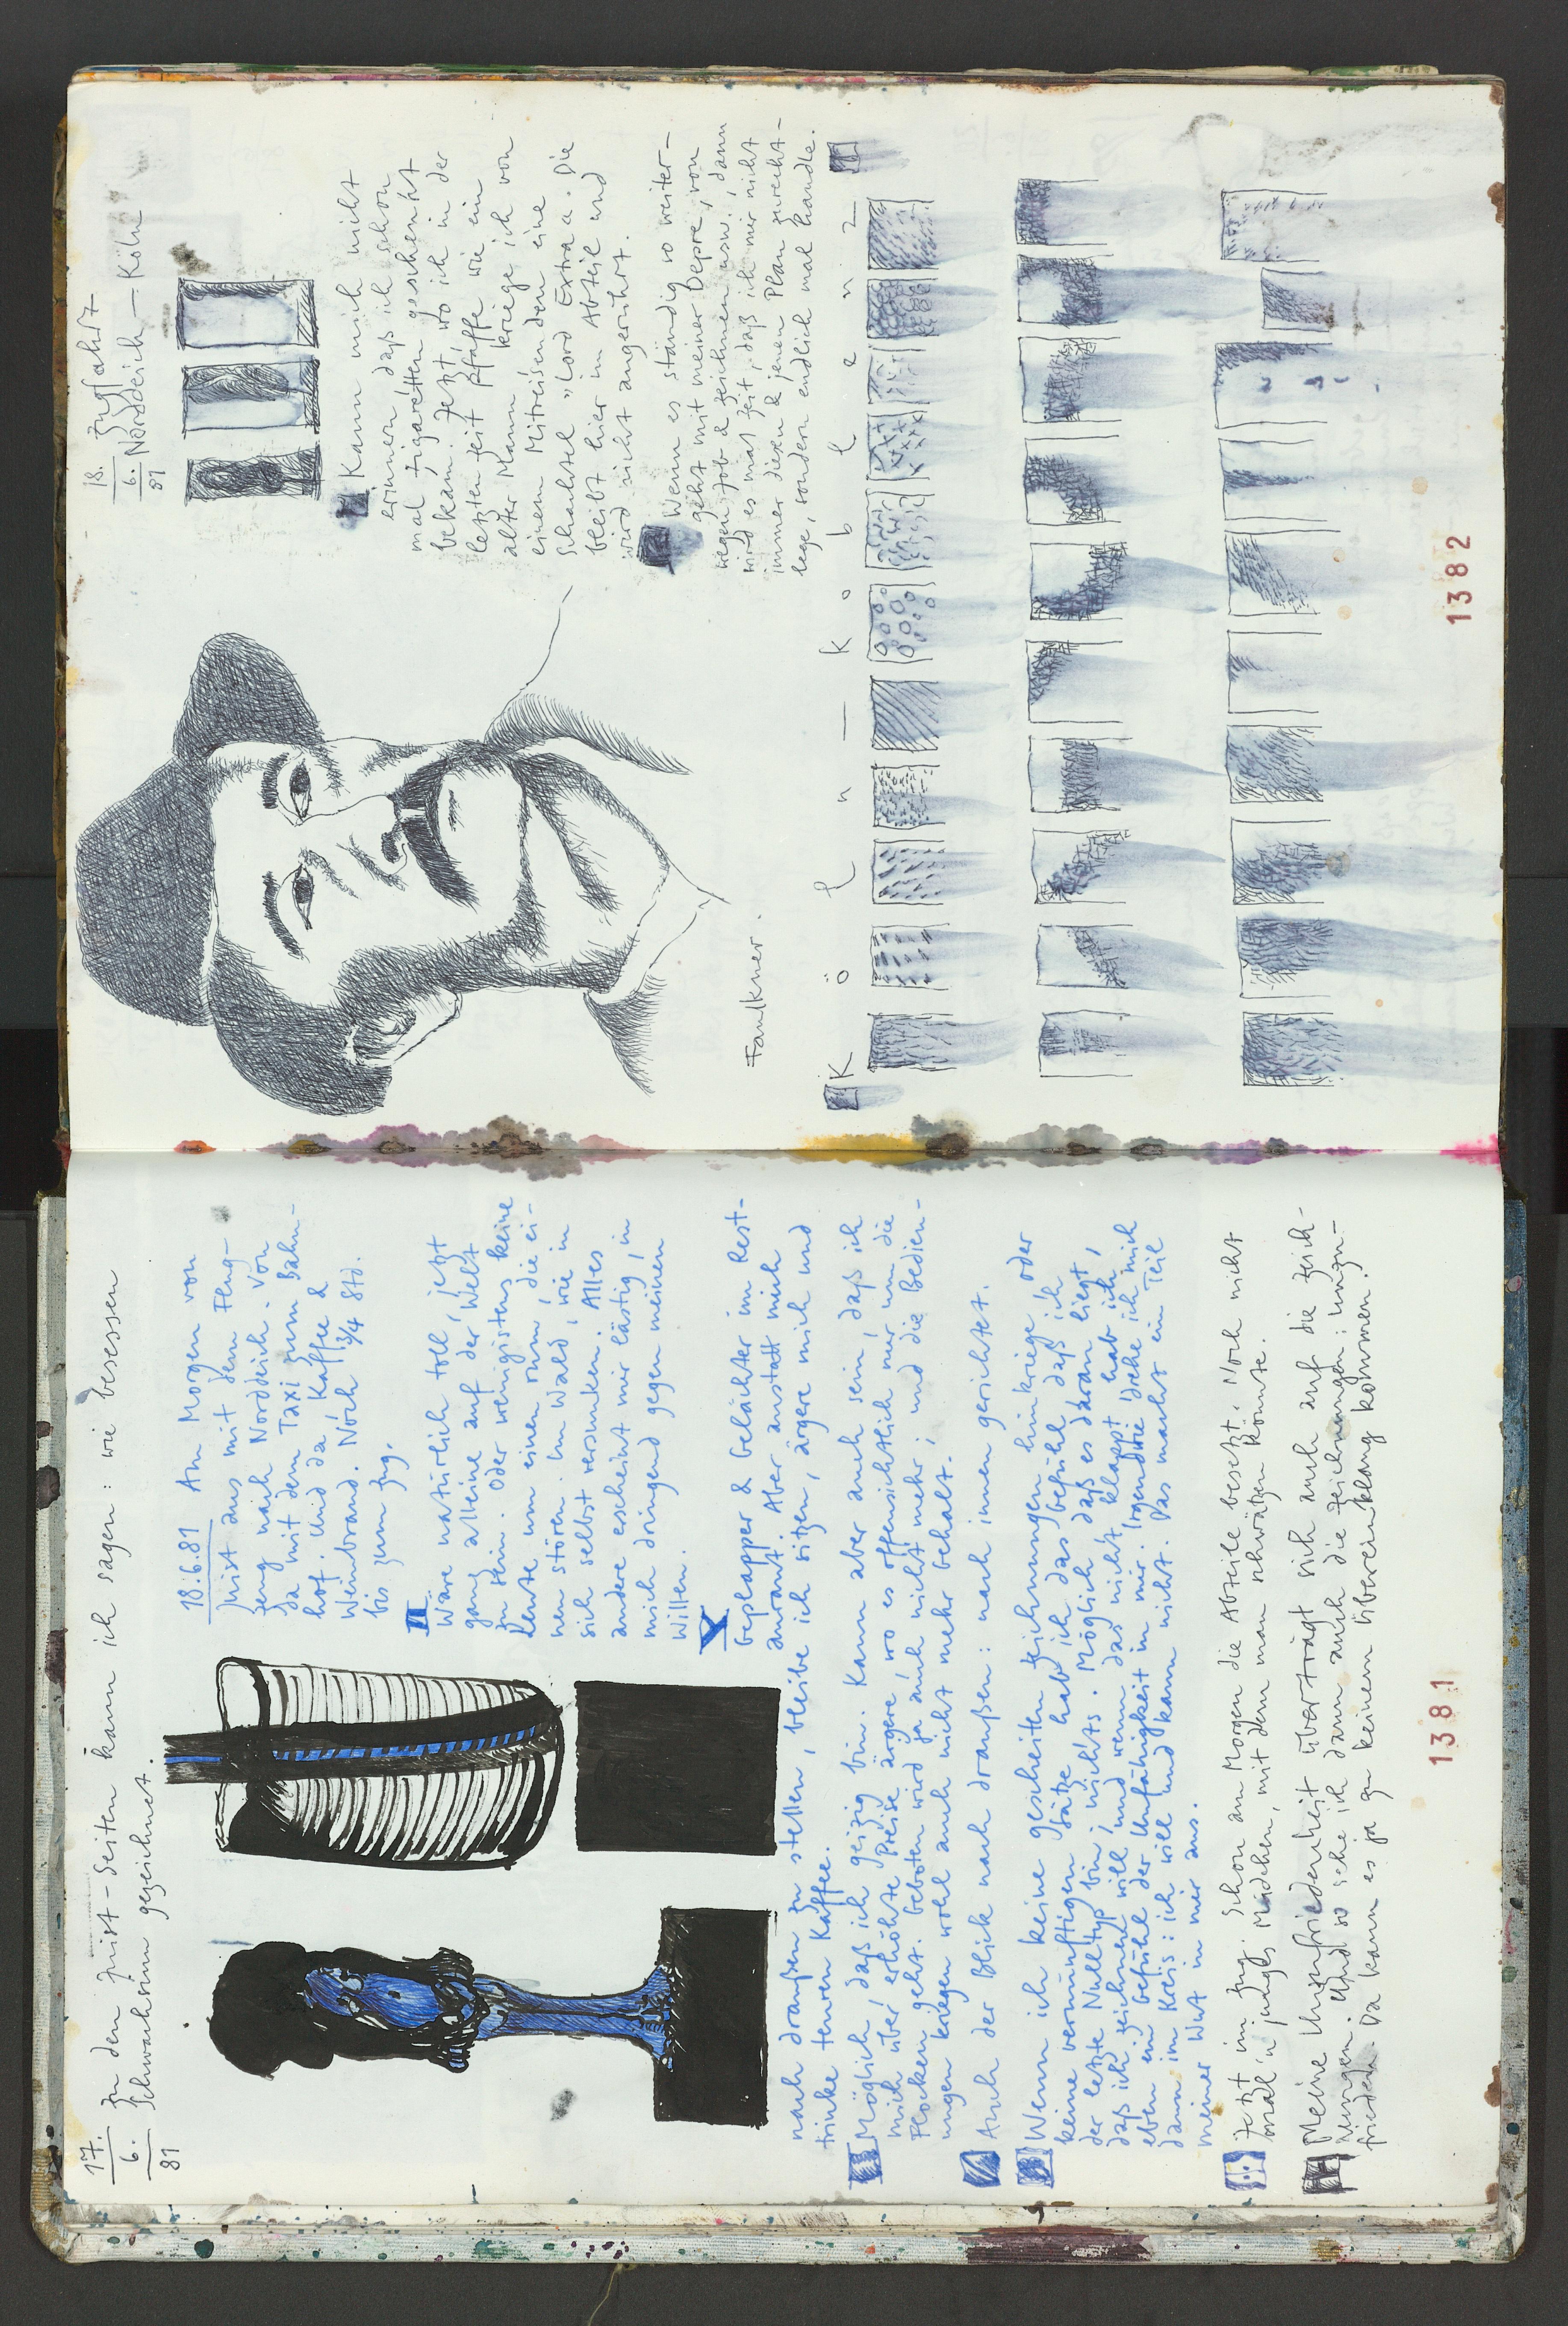 17.
6.
81
Zu den Juist-Seiten kann ich sagen: wie besessen
Schwachsinn gezeichnet.
18.6.81 Am Morgen von
Juist aus mit dem Flug-
zeug nach Norddeich. Von
da mit dem Taxi zum Bahn-
hof. Und da Kaffee &
Weinbrand. Noch 1 3/4 Std.
bis zum Zug.
Wäre natürlich toll, jetzt
ganz alleine auf der Welt
zu sein. Oder wenigstens keine
Leute um einen rum, die ei-
nen stören. Im Wald, wie in
sich selbst versunken. Alles
andere erscheint mir lästig, in
mich dringend gegen meinen
Willen.
Geplapper & Gelächter im Rest-
aurant. Aber anstatt mich
nach draußen zu stellen, bleibe ich sitzen, ärgere mich und
trinke teuren Kaffee.
Möglich, daß ich geizig bin. Kann aber auch sein, daß ich
mich über erhöhte Preise ärgere, wo es offensichtlich nur um die
Flocken geht. Geboten wird ja auch nicht mehr; und die Bedien-
ungen kriegen wohl auch nicht mehr Gehalt.
Auch der Blick nach draußen: nach innen gerichtet.
Wenn ich keine gescheiten Zeichnungen hinkriege oder
keine vernünftigen Sätze hab ich das Gefühl daß ich
der letzte Nulltyp bin, nichts. Möglich daß es daran liegt,
daß ich zeichnen will und wenn das nicht klappt hab ich
eben ein Gefühl der Unfähigkeit in mir. Irgendwie drehe ich mich
dann im Kreis: ich will und kann nicht. Das macht ein Teil
meiner Wut in mir aus.
Jetzt im Zug. Schon am Morgen die Abteile besetzt. Noch nicht
mal 'n junges Mädchen, mit dem man schwätzen könnte.
Meine Unzufriedenheit überträgt sich auch auf die Zeich-
nungen. Und so sehe ich dann auch die Zeichnungen: unzu-
frieden. Da kann es ja zu keinem Übereinklang kommen.
1381
18.
6.
81
Zugfahrt
Norddeich – Köln
Kann mich nicht
erinnern, daß ich schon
mal Zigaretten geschenkt
bekam. Jetzt, wo ich in der
letzten Zeit paffe wie ein
alter Mann kriege ich von
einem Mitreisenden eine
Schachtel „Lord Extra". Die
bleibt hier im Abteil und
wird nicht angerührt.
Wenn es ständig so weiter-
geht mit meiner Depre, von
wegen Job & zeichnen usw., dann
wird es mal Zeit, daß ich mir nicht
immer diesen & jenen Plan zurecht-
lege, sondern endlich mal handle.
Faulkner.
Köln – koblenz
1382